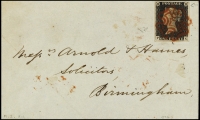 POSTAGE
Mess.rs Arnold & Haines
Solicitors
Birmingham